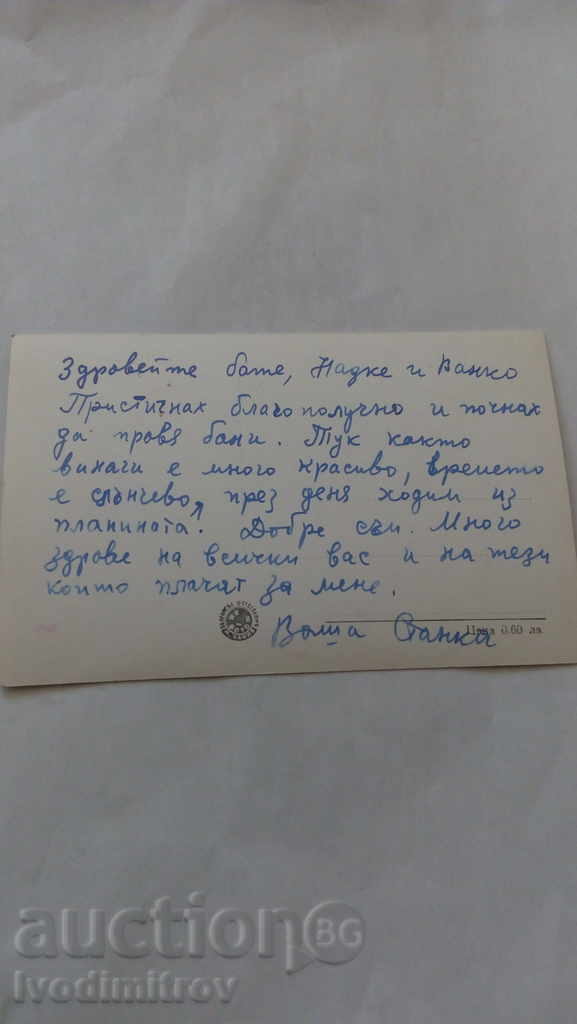 Здравейте бате, Надке и Ванко
Пристигнах благополучно и почнах
да правя бани. Тук както
винаги е много красиво, времето
е слънчево, през деня ходим из
планината. Добре съм. Много
здраве на всички вас и на тези
които плачат за мене.
Ваша Станка
Цена 0.60 лв.
auctionBG
Ivodimitrov